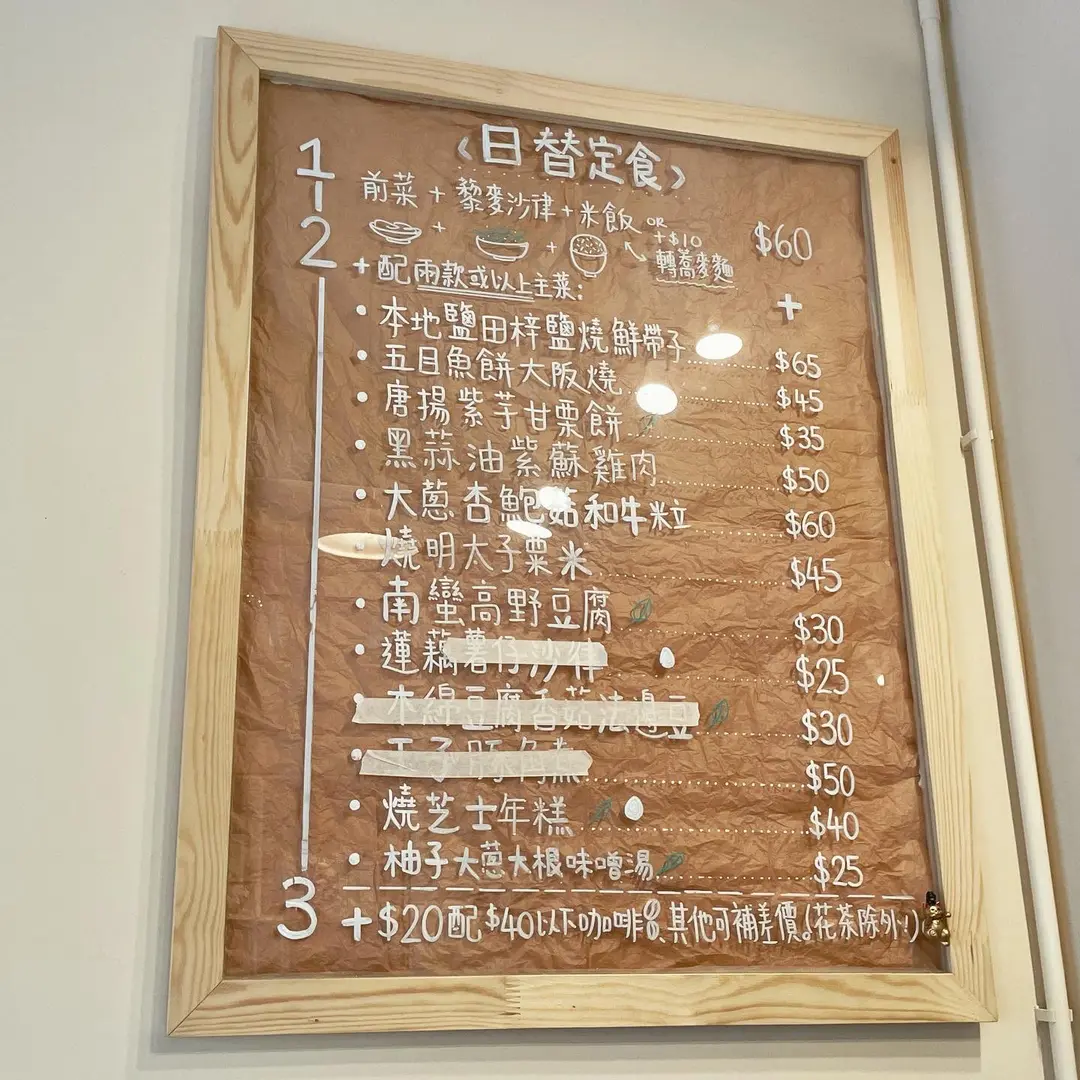 1
〈日替定食〉
前菜 + 藜麥沙律 + 米飯 OR
+ + +$10 $60
2
轉蕎麥麵
+配兩款或以上主菜: +
• 本地鹽田梓鹽燒鮮帶子 $65
• 五目魚餅大阪燒 $45
• 唐揚紫芋甘栗餅 $35
• 黑蒜油紫蘇雞肉 $50
• 大蔥杏鮑菇和牛粒 $60
• 燒明太子粟米 $45
• 南蠻高野豆腐 $30
• 蓮藕薯仔沙律 $25
• 木綿豆腐香菇法邊豆 $30
$50
• 燒芝士年糕 $40
• 柚子大蔥大根味噌湯 $25
3 +$20配 $40以下咖啡, 其他可補差價。(花茶除外!)